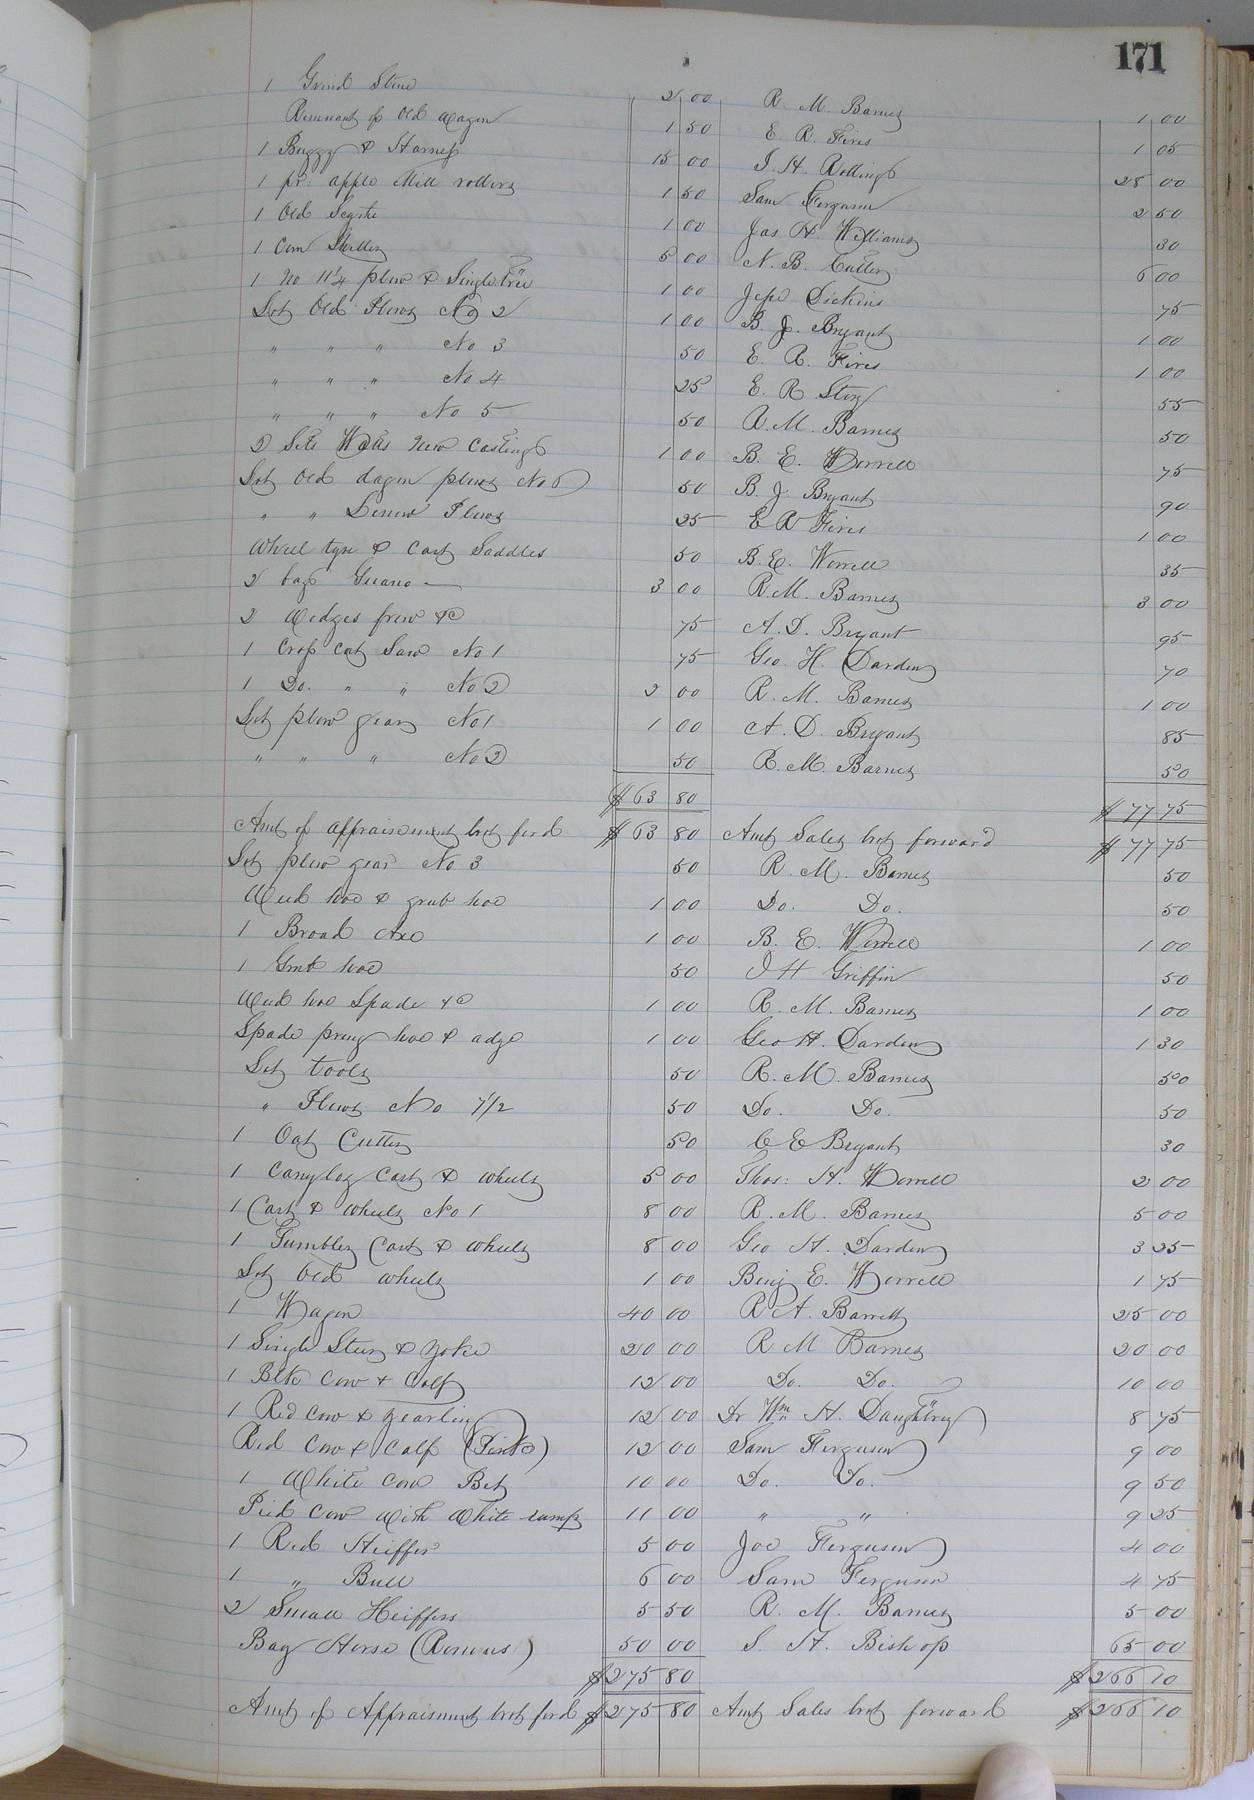 171
1 Grind Stone 2 00 R. M. Barnes 1 00
Remnant of Old Wagon 1 50 E. R. Fires 1 05
1 Buggy & Harness 15 00 J. H. Rollings 28 00
1 pr. apple Mill rollers 1 50 Sam Ferguson 2 50
1 Old Scythe 1 00 Jas H Williams 30
1 Corn Sheller 5 00 N. B. Cutler 6 00
1 No 11¼ plow & Singletree 1 00 Jesse Dickins 75
Lot Old Plows No 2 1 00 B. J. Bryant 1 00
" " " No 3 50 E. R. Fires 1 00
" " " No 4 25 E. R Story 55
" " " No 5 50 R. M. Barnes 50
2 Sets Watts New Castings 1 00 B. E. Worrell 75
Lot Old dagon plows No 6 50 B. J Bryant 90
" " Plows 25 E R Fires 1 00
Wheel tyre & Cart Saddles 50 B. E. Worrell 35
2 bags Guano 3 00 R. M. Barnes 3 00
2 Wedges frow &c 75 A. D. Bryant 95
1 Cross Cut Saw No 1 75 Geo. H. Darden 70
1 Do. " " No 2 2 00 R. M. Barnes 1 00
Lot plow gear No 1 1 00 A. D. Bryant 85
" " " No 2 50 R. M. Barnes 50
$63 80 $77 75
Amt of appraisement brot ford $63 80 Amt Sales brot forward $77 75
Lot plow gear No 3 50 R. M. Barnes 50
Weed hoe & grub hoe 1 00 Do. Do. 50
1 Broad Axe 1 00 B. E. Worrell 1 00
1 Grub hoe 50 J H Griffin 50
Weed hoe Spade &c 1 00 R. M. Barnes 1 00
Spade prong hoe & adze 1 00 Geo H. Darden 1 30
Lot tools 50 R. M. Barnes 50
" Plows No 7½ 50 Do. Do. 50
1 Oat Cutter 50 C E Bryant 30
1 Carrylog Cart & wheels 5 00 Thos: H. Worrell 2 00
1 Cart & wheels No 1 8 00 R. M. Barnes 5 00
1 Tumbler Cart & wheels 8 00 Geo H. Darden 3 25
Lot Old wheels 1 00 Benj E. Worrell 1 75
1 Wagon 40 00 R A. Barrett 25 00
1 Single Steer & yoke 20 00 R M Barnes 20 00
1 Blk Cow & Calf 12 00 Do. Do. 10 00
1 Red Cow & yearling 12 00 Dr Wm H. Daughtrey 8 75
Red Cow & Calf (Pink) 12 00 Sam Ferguson 9 00
1 White Cow Bet 10 00 Do. Do. 9 50
Pied Cow with White rump 11 00 " " 9 25
1 Red Heiffer 5 00 Joe Ferguson 4 00
1 " Bull 6 00 Sam Ferguson 4 75
2 Small Heiffers 5 50 R. M. Barnes 5 00
Bay Horse (Romus) 50 00 S. H. Bishop 65 00
$275 80 $266 10
Amt of Appraisment brot ford $275 80 Amt Sales brot forward $266 10